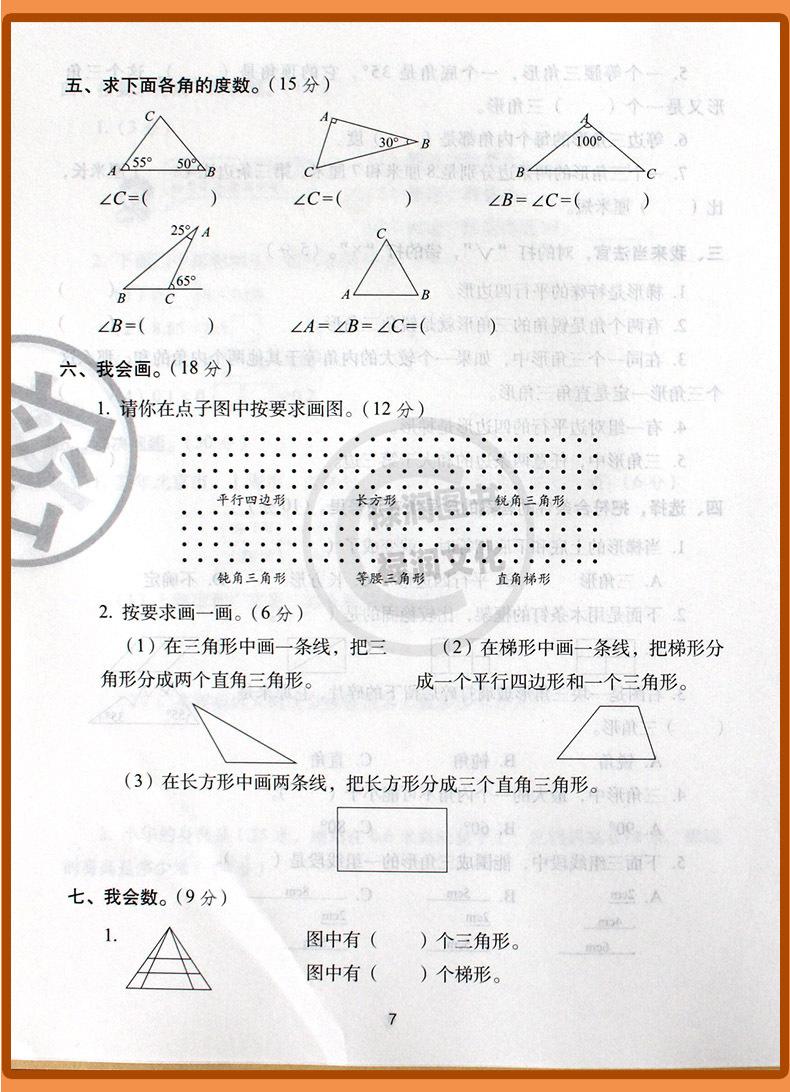 五、求下面各角的度数。(15分)
C
A 55° 50° B
∠C=( )
A
30° B
C
∠C=( )
A
100°
B C
∠B=∠C=( )
25° A
65°
B C
∠B=( )
C
A B
∠A=∠B=∠C=( )
六、我会画。(18分)
1. 请你在点子图中按要求画图。(12分)
平行四边形 长方形 锐角三角形
钝角三角形 等腰三角形 直角梯形
2. 按要求画一画。(6分)
(1)在三角形中画一条线，把三
角形分成两个直角三角形。
(2)在梯形中画一条线，把梯形分
成一个平行四边形和一个三角形。
(3)在长方形中画两条线，把长方形分成三个直角三角形。
七、我会数。(9分)
1.
图中有( )个三角形。
图中有( )个梯形。
7
禄润图书
禄润文化